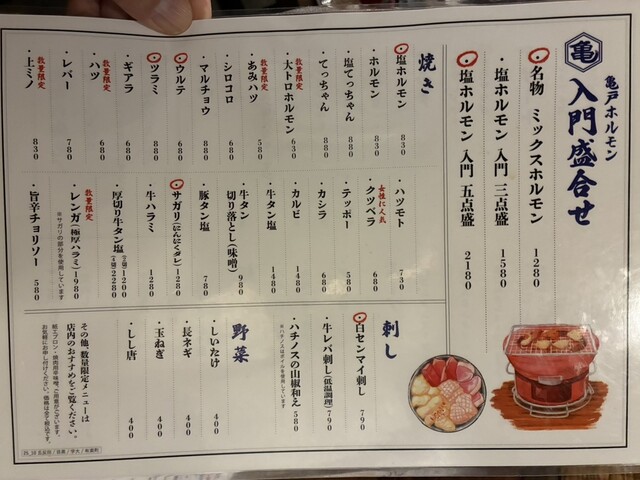 亀
亀戸ホルモン
入門盛合せ
・名物 ミックスホルモン 1280
・塩ホルモン 入門 三点盛 1580
・塩ホルモン 入門 五点盛 2180
焼き
・塩ホルモン 830
・ホルモン 830
・塩てっちゃん 880
・てっちゃん 880
数量限定
・大トロホルモン 630
数量限定
・あみハツ 580
・シロコロ 680
・マルチョウ 880
・ウルテ 680
・ツラミ 880
・ギアラ 680
数量限定
・ハツ 680
・レバー 780
数量限定
・上ミノ 830
・ハツモト 730
女性に人気
・クツベラ 680
・テッポー 580
・カシラ 680
・カルビ 1480
・牛タン塩 1480
・牛タン
切り落とし(味噌) 980
・豚タン塩 780
・サガリ(にんにくダレ) 1280
・牛ハラミ 1280
・厚切り牛タン塩 1200
2280
数量限定
・レンガ(極厚ハラミ) 1980
※サガリの部分を使用しています
・旨辛チョリソー 580
刺し
・白センマイ刺し 790
・牛レバ刺し(低温調理) 790
・ハチノスの山椒和え 580
※ハチノスはボイルを使用しています
野菜
・しいたけ 400
・長ネギ 400
・玉ねぎ 400
・しし唐 400
その他、数量限定メニューは
店内のおすすめをご覧ください。
お気軽にお申し付けください。価格は全て税込です。